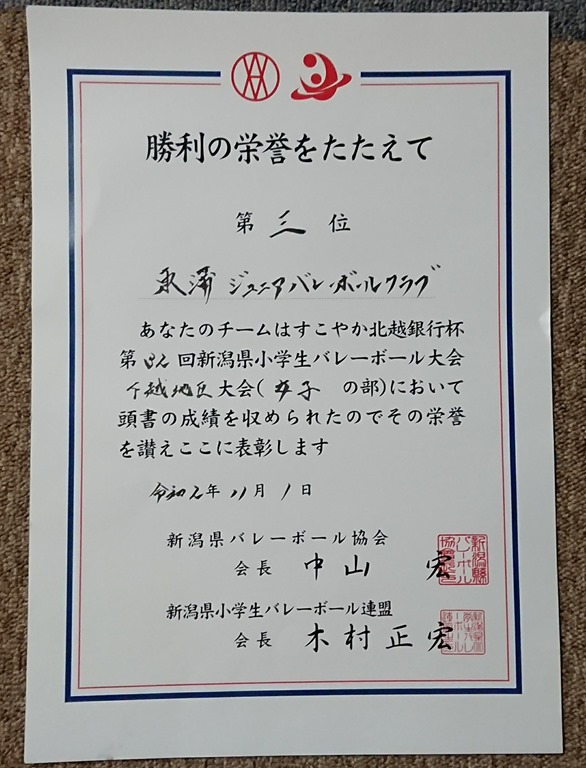 勝利の栄誉をたたえて
第三位
東浦ジュニアバレーボールクラブ
あなたのチームはすこやか北越銀行杯
第32回新潟県小学生バレーボール大会
下越地区大会(女子の部)において
頭書の成績を収められたのでその栄誉
を讃えここに表彰します
令和元年11月1日
新潟県バレーボール協会
会長 中山 宏
新潟県小学生バレーボール連盟
会長 木村正宏